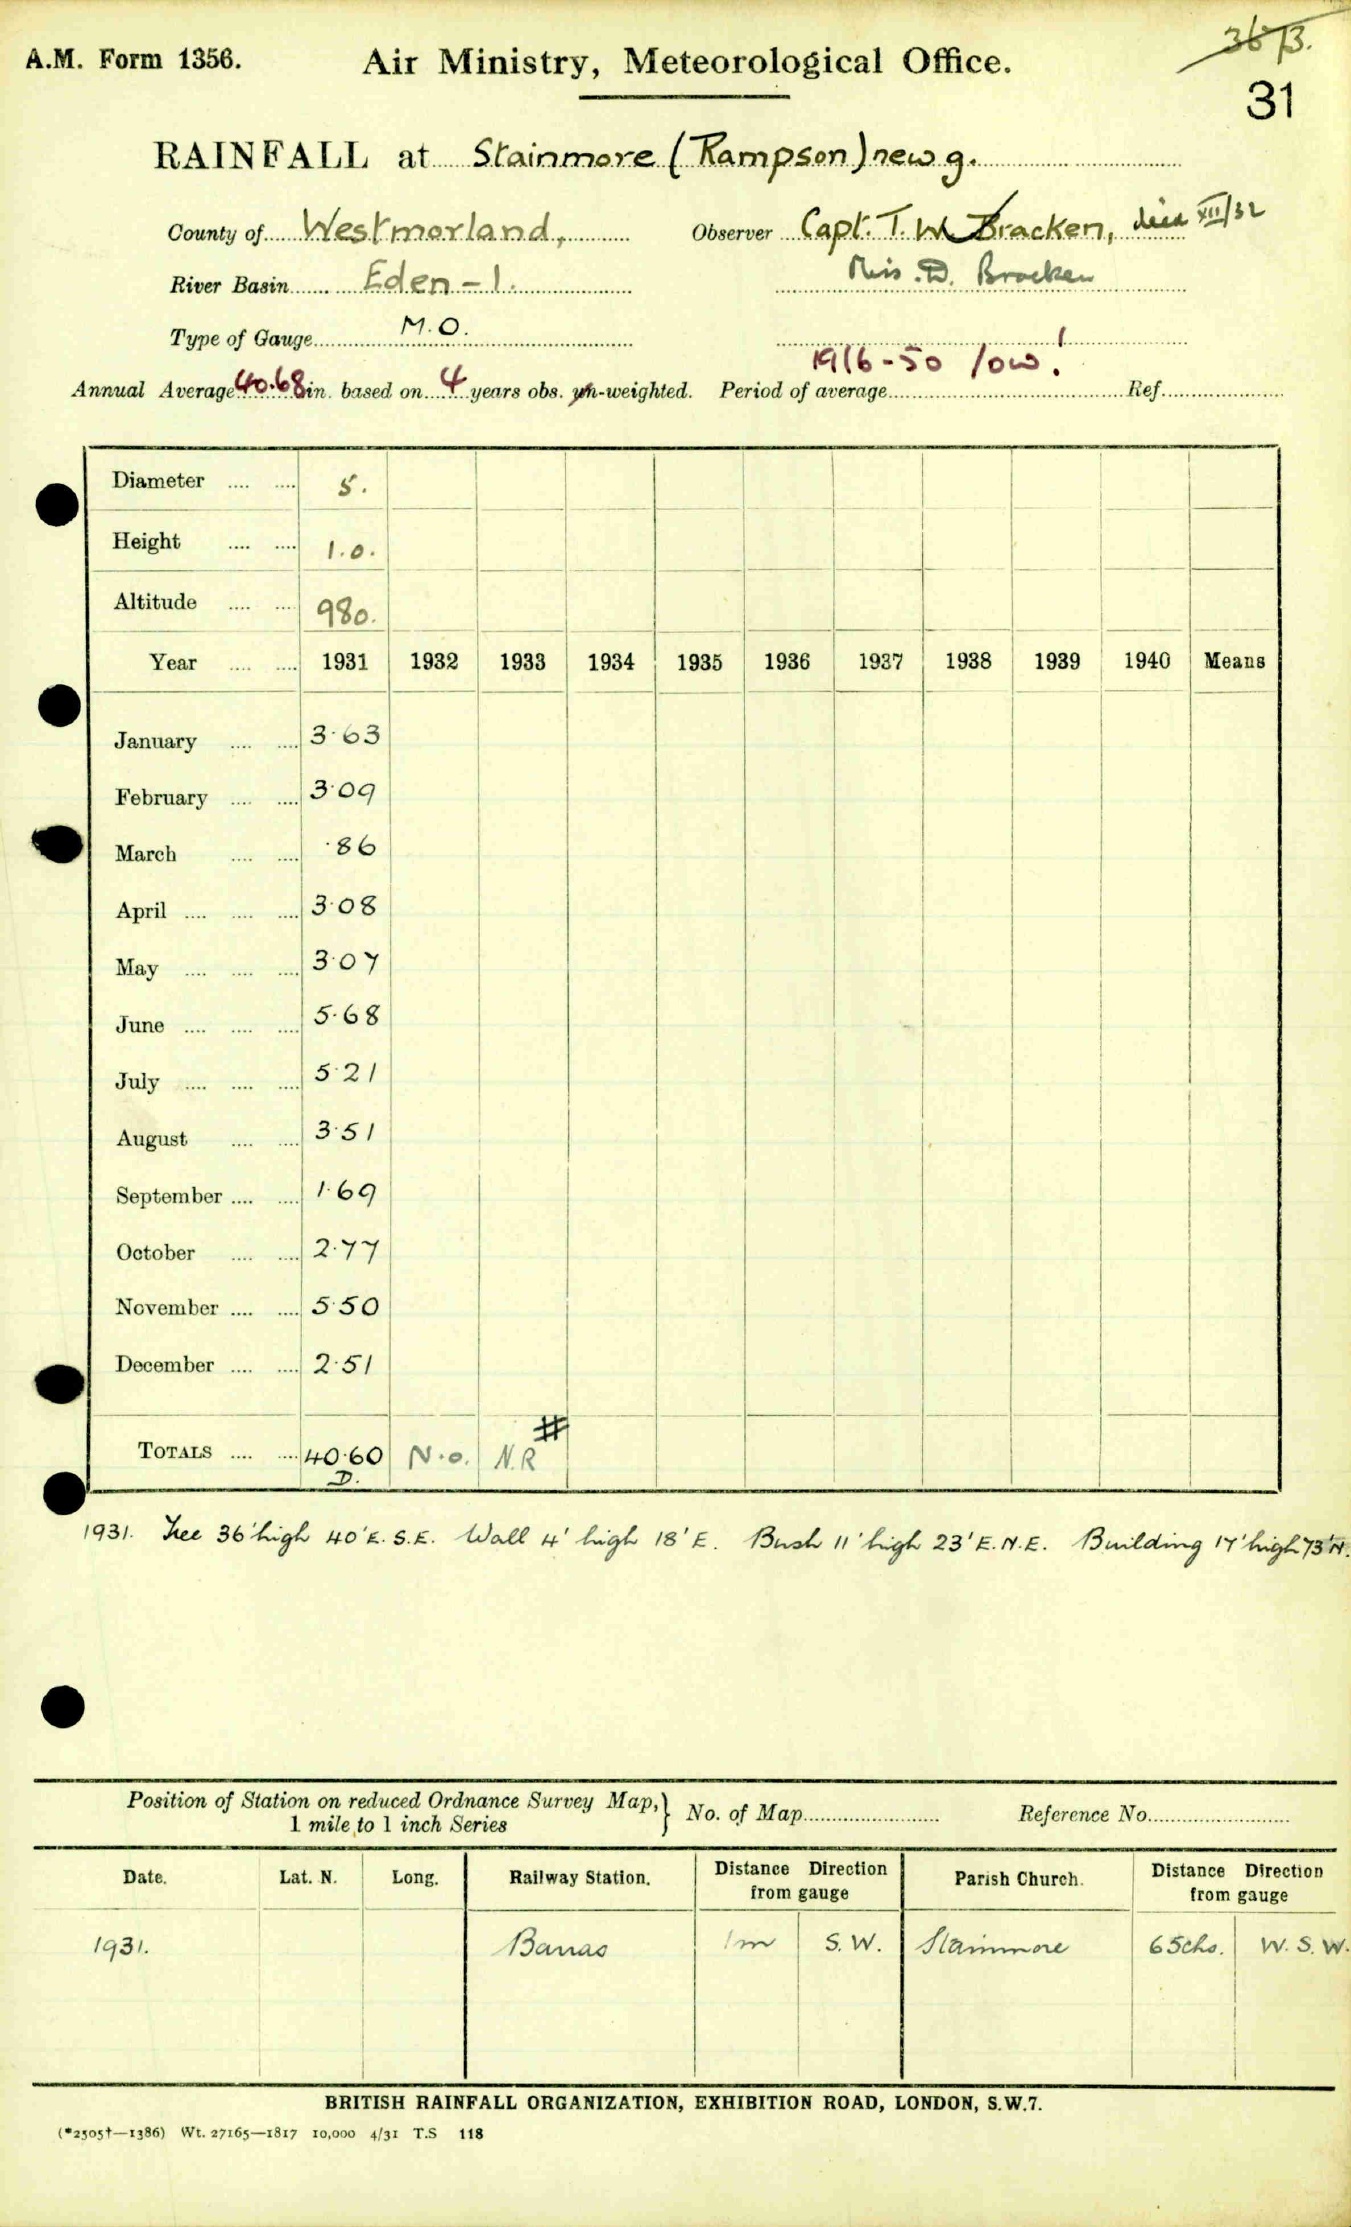 A.M. Form 1356.
Air Ministry, Meteorological Office.
3673.
31
RAINFALL at Stainmore (Rampson) new g.
County of Westmorland, Observer Capt. T. W. Bracken, died XII/32
River Basin Eden - 1. Miss. D. Bracken
Type of Gauge M.O.
1916-50 low!
Annual Average 40.68 in. based on 4 years obs. un-weighted. Period of average Ref.
Diameter 5.
Height 1.0.
Altitude 980.
Year 1931 1932 1933 1934 1935 1936 1937 1938 1939 1940 Means
January 3.63
February 3.09
March .86
April 3.08
May 3.07
June 5.68
July 5.21
August 3.51
September 1.69
October 2.77
November 5.50
December 2.51
#
TOTALS 40.60 N.o. N.R
D.
1931. Tree 36' high 40' E.S.E. Wall 4' high 18' E. Bush 11' high 23' E.N.E. Building 17' high 73' N.
Position of Station on reduced Ordnance Survey Map, } No. of Map Reference No.
1 mile to 1 inch Series
Date. Lat. N. Long. Railway Station. Distance Direction from gauge Parish Church. Distance Direction from gauge
1931. Barras 1m S.W. Stainmore 65chs. W.S.W.
BRITISH RAINFALL ORGANIZATION, EXHIBITION ROAD, LONDON, S.W.7.
(*2505†—1386) Wt. 27165—1817 10,000 4/31 T.S 118